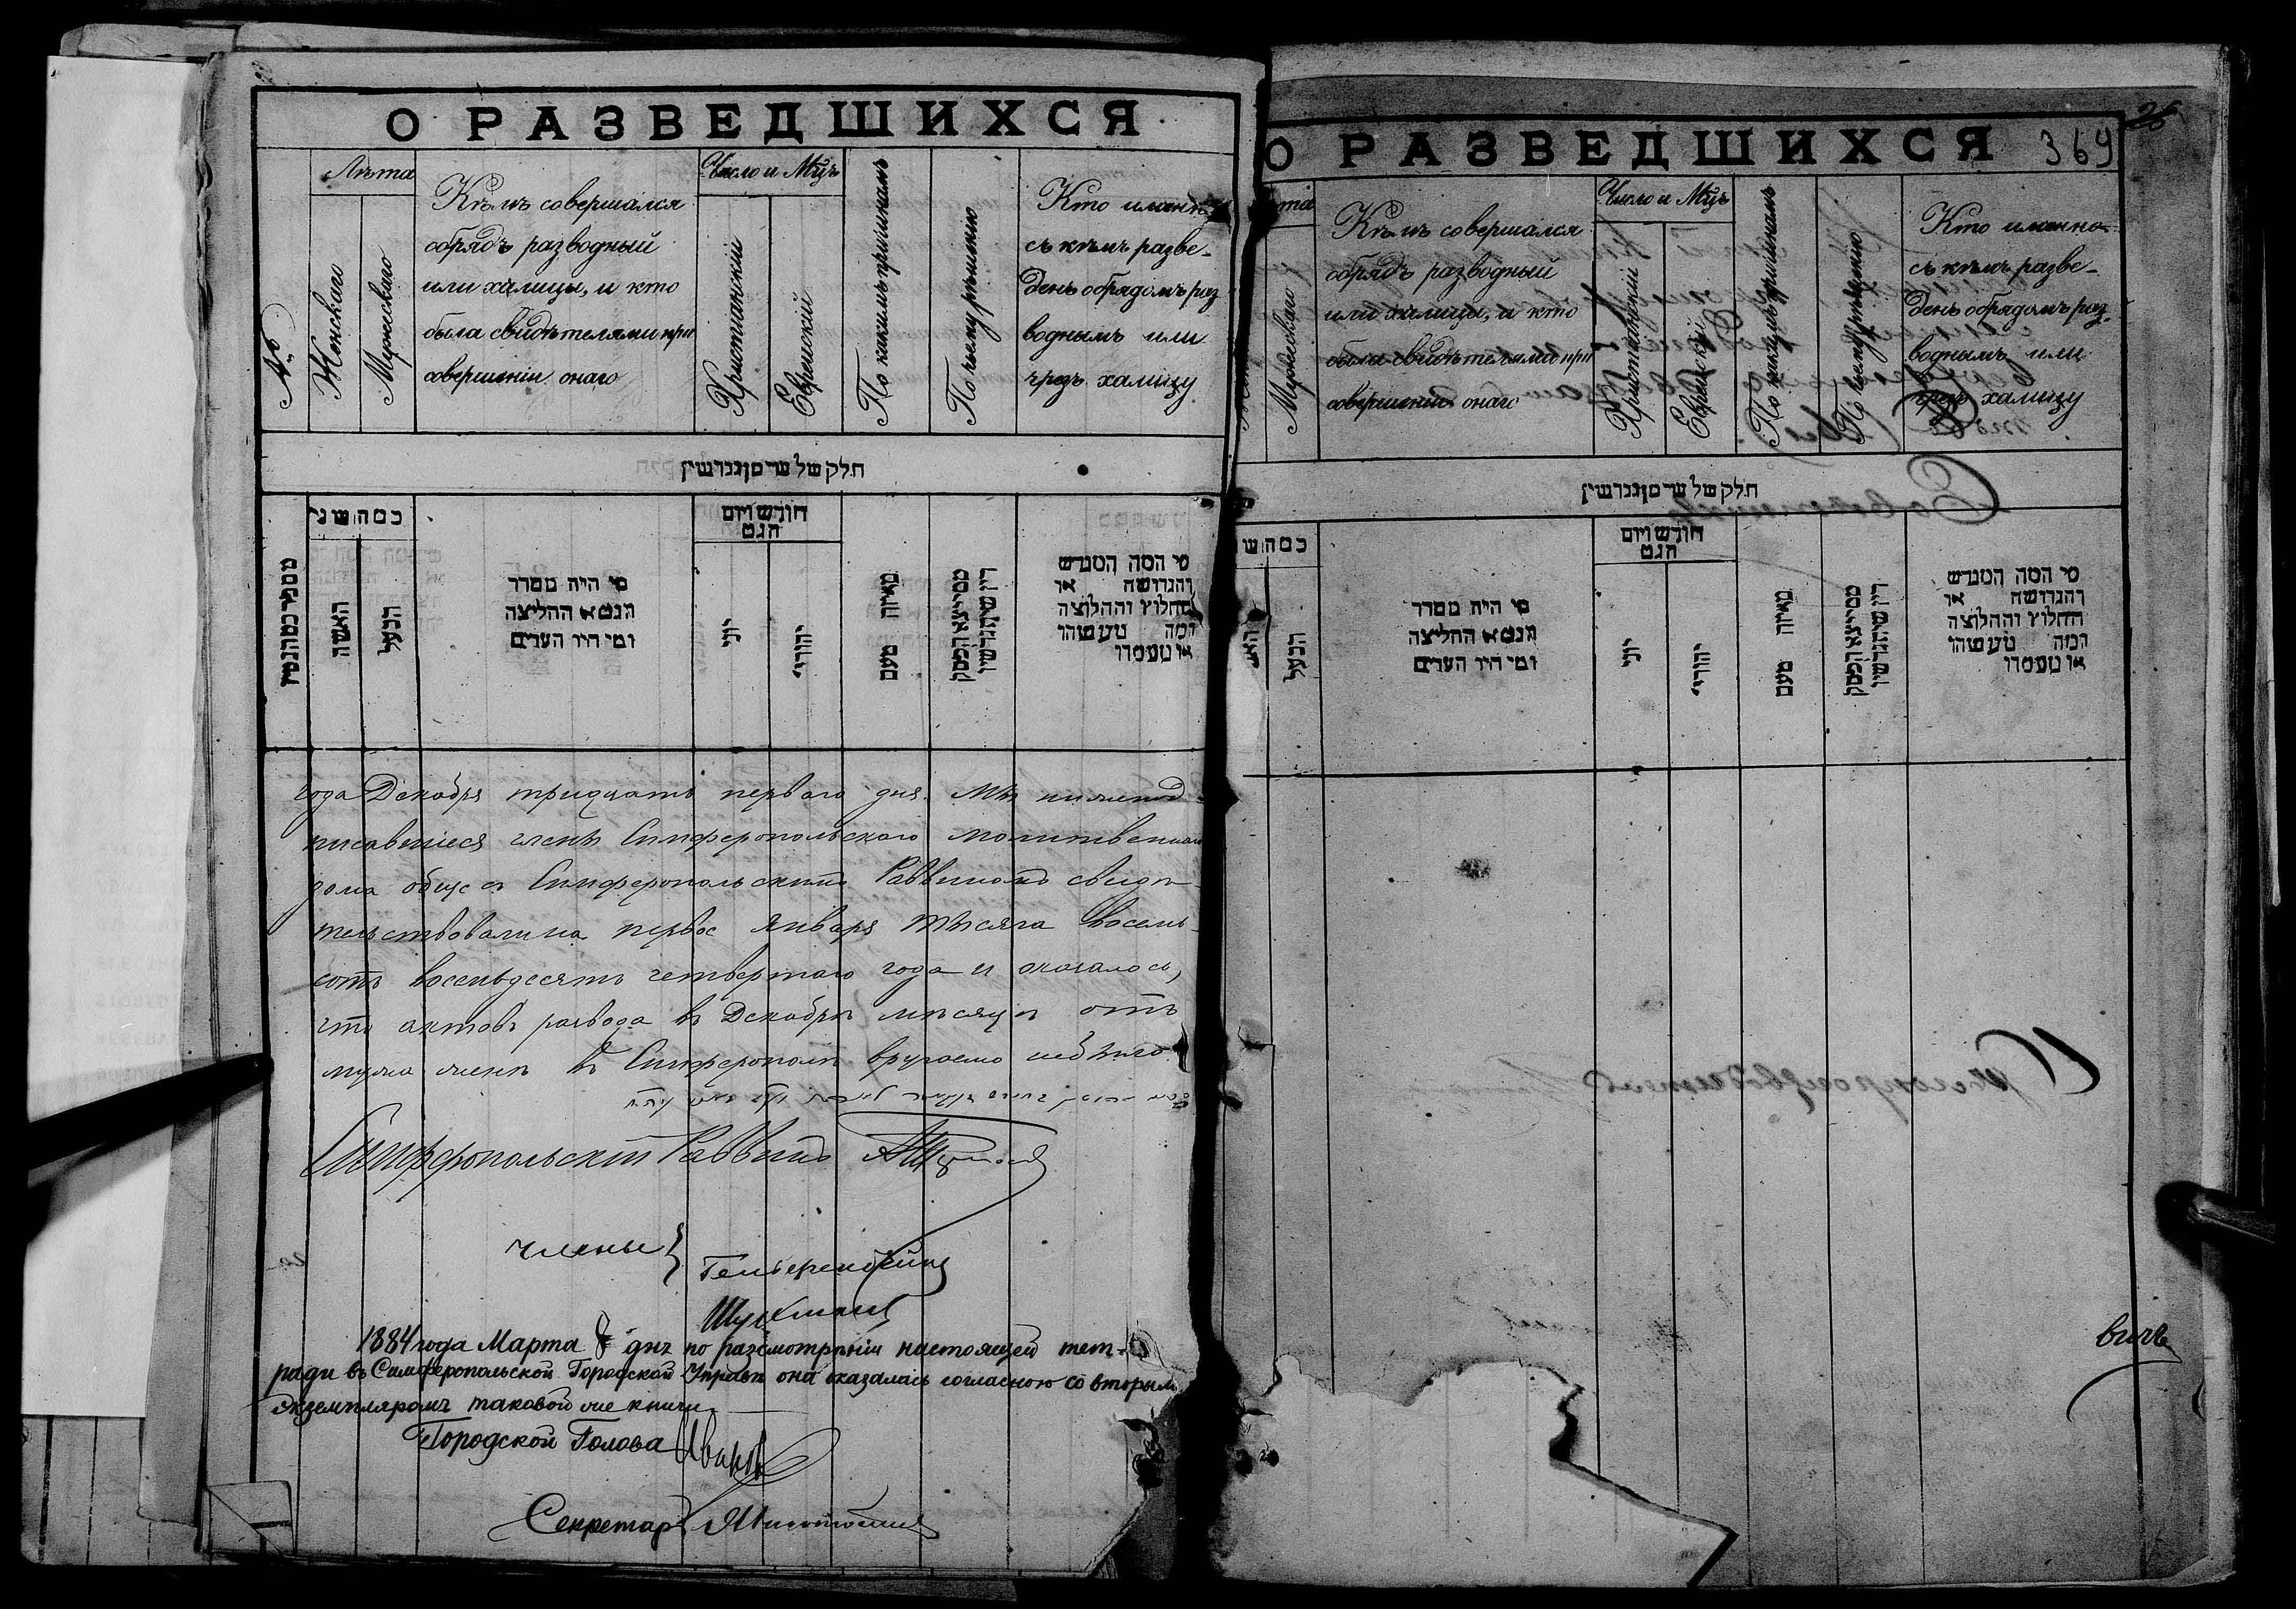 О РАЗВЕДШИХСЯ
№
Лѣта
Женскаго
Мужескаго
Кѣмъ совершался
обрядъ разводный
или халицы, и кто
были свидѣтелями при
совершеніи онаго
Число и Мцъ
Христіанскій
Еврейскій
По какимъ причинамъ
По чьему рѣшенію
Кто именно
съ кѣмъ разве-
денъ обрядомъ раз
воднымъ или
чрезъ халицу
חלק של
כמה שני
האשה
הבעל
מי היה מסדר
הגט או החליצה
ומי היו העדים
חודש ויום
הגט
יוני
יהודי
מאיזה טעם
מי המה המגרש
והגרושה או
החלוץ והחלוצה
ומה
года Декабря тридцать перваго дня. Мы нижепод-
писавшіеся члены Симферопольскаго молитвеннаго
дома обще съ Симферопольскимъ Раввиномъ свидѣ-
тельствовали на первое Января тысяча восемь-
сотъ восемьдесятъ четвертаго года и оказалось,
что актовъ развода въ Декабрѣ мѣсяцѣ отъ
мужа женѣ въ Симферополѣ вручаемо не было.
Симферопольскій Раввинъ
Члены
Шухман
1884 года Марта 8 дня по разсмотрѣніи настоящей тет-
ради въ Симферопольской Городской Управѣ она оказалась согласною со вторымъ
экземпляромъ таковой же книги.
Городской Голова Иванов
Секретарь
26
О РАЗВЕДШИХСЯ 369
Мужескаго
Кѣмъ совершался
обрядъ разводный
или халицы, и кто
были свидѣтелями при
совершеніи онаго
Число и Мцъ
Христіанскій
Еврейскій
По какимъ причинамъ
По чьему рѣшенію
Кто именно
съ кѣмъ разве-
денъ обрядомъ раз-
воднымъ или
чрезъ халицу
חלק של
הבעל
מי היה מסדר
הגט או החליצה
ומי היו העדים
חודש ויום
הגט
יוני
יהודי
מאיזה טעם
מי המה המגרש
והגרושה או
החלוץ והחלוצה
ומה
вичъ